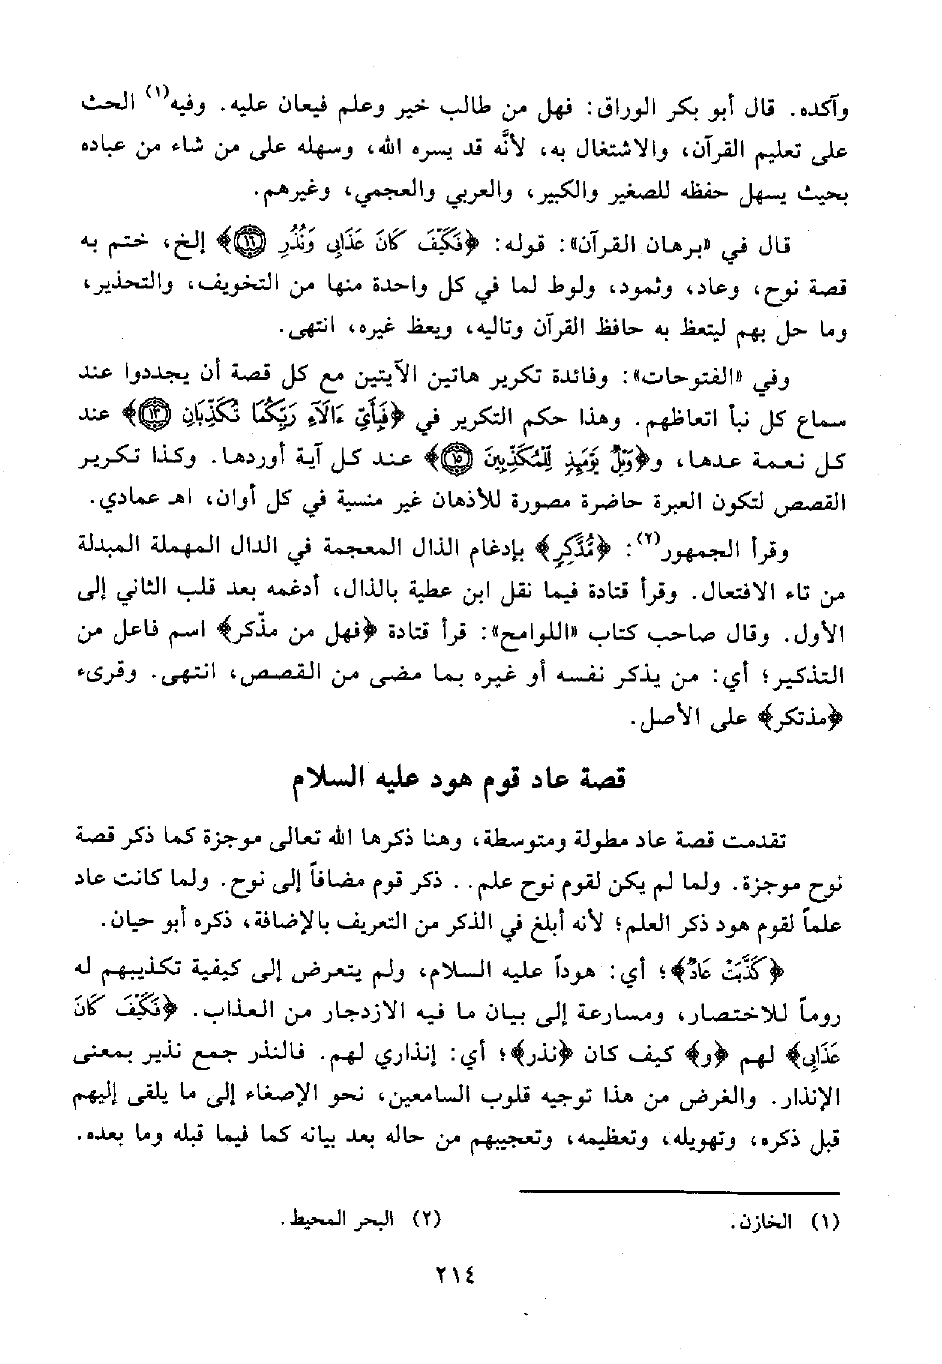 وآكده. قال أبو بكر الوراق: فهل من طالب خير وعلم فيعان عليه. وفيه(١) الحث
على تعليم القرآن، والاشتغال به، لأنَّه قد يسره الله، وسهله على من شاء من عباده
بحيث يسهل حفظه للصغير والكبير، والعربي والعجمي، وغيرهم.
قال في «برهان القرآن»: قوله: ﴿فَكَيْفَ كَانَ عَذَابِى وَنُذُرِ ۝١٦﴾ إلخ، ختم به
قصة نوح، وعاد، وثمود، ولوط لما في كل واحدة منها من التخويف، والتحذير،
وما حل بهم ليتعظ به حافظ القرآن وتاليه، ويعظ غيره، انتهى.
وفي «الفتوحات»: وفائدة تكرير هاتين الآيتين مع كل قصة أن يجددوا عند
سماع كل نبأ اتعاظهم. وهذا حكم التكرير في ﴿فَبِأَيِّ ءَالَآءِ رَبِّكُمَا تُكَذِّبَانِ ۝١٣﴾ عند
كل نعمة عدها، و﴿وَيْلٌ يَوْمَئِذٍ لِّلْمُكَذِّبِينَ ۝١٥﴾ عند كل آية أوردها. وكذا تكرير
القصص لتكون العبرة حاضرة مصورة للأذهان غير منسية في كل أوان، اهـ عمادي.
وقرأ الجمهور(٢): ﴿مُّدَّكِرٍ﴾ بإدغام الذال المعجمة في الدال المهملة المبدلة
من تاء الافتعال. وقرأ قتادة فيما نقل ابن عطية بالذال، أدغمه بعد قلب الثاني إلى
الأول. وقال صاحب كتاب «اللوامح»: قرأ قتادة ﴿فهل من مذّكر﴾ اسم فاعل من
التذكير؛ أي: من يذكر نفسه أو غيره بما مضى من القصص، انتهى. وقرىء
﴿مذتكر﴾ على الأصل.
قصة عاد قوم هود عليه السلام
تقدمت قصة عاد مطولة ومتوسطة، وهنا ذكرها الله تعالى موجزة كما ذكر قصة
نوح موجزة. ولما لم يكن لقوم نوح علم.. ذكر قوم مضافاً إلى نوح. ولما كانت عاد
علماً لقوم هود ذكر العلم؛ لأنه أبلغ في الذكر من التعريف بالإضافة، ذكره أبو حيان.
﴿كَذَّبَتْ عَادٌ﴾؛ أي: هوداً عليه السلام، ولم يتعرض إلى كيفية تكذيبهم له
روماً للاختصار، ومسارعة إلى بيان ما فيه الازدجار من العذاب. ﴿فَكَيْفَ كَانَ
عَذَابِى﴾ لهم ﴿و﴾ كيف كان ﴿نذر﴾؛ أي: إنذاري لهم. فالنذر جمع نذير بمعنى
الإنذار. والغرض من هذا توجيه قلوب السامعين، نحو الإصغاء إلى ما يلقى إليهم
قبل ذكره، وتهويله، وتعظيمه، وتعجيبهم من حاله بعد بيانه كما فيما قبله وما بعده.
(١) الخازن.
(٢) البحر المحيط.
٢١٤